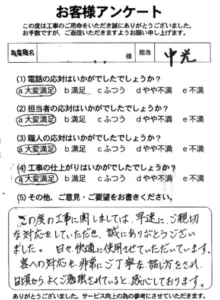 お客様アンケート
この度は工事のご用命をいただき誠にありがとうございました。
お手数ですが、ご返信いただきますようお願い申し上げます。
お客様名 様 担当 中光
(1) 電話の応対はいかがでしたでしょうか?
a 大変満足 b 満足 c ふつう d やや不満 e 不満
(2) 担当者の応対はいかがでしたでしょうか?
a 大変満足 b 満足 c ふつう d やや不満 e 不満
(3) 職人の応対はいかがでしたでしょうか?
a 大変満足 b 満足 c ふつう d やや不満 e 不満
(4) 工事の仕上がりはいかがでしたでしょうか?
a 大変満足 b 満足 c ふつう d やや不満 e 不満
(5) その他、ご意見・ご要望をお書きください。
この度の工事に関しましては、早速に、ご親切
な対応をしていただき、誠にありがとうござい
ました。日々快適に使用させていただいています。
客への対応も非常にご丁寧な話し方をされ、
日頃からよくご勉強されていると感心しております。
ありがとうございました。サービス向上の為の参考にさせていただきます